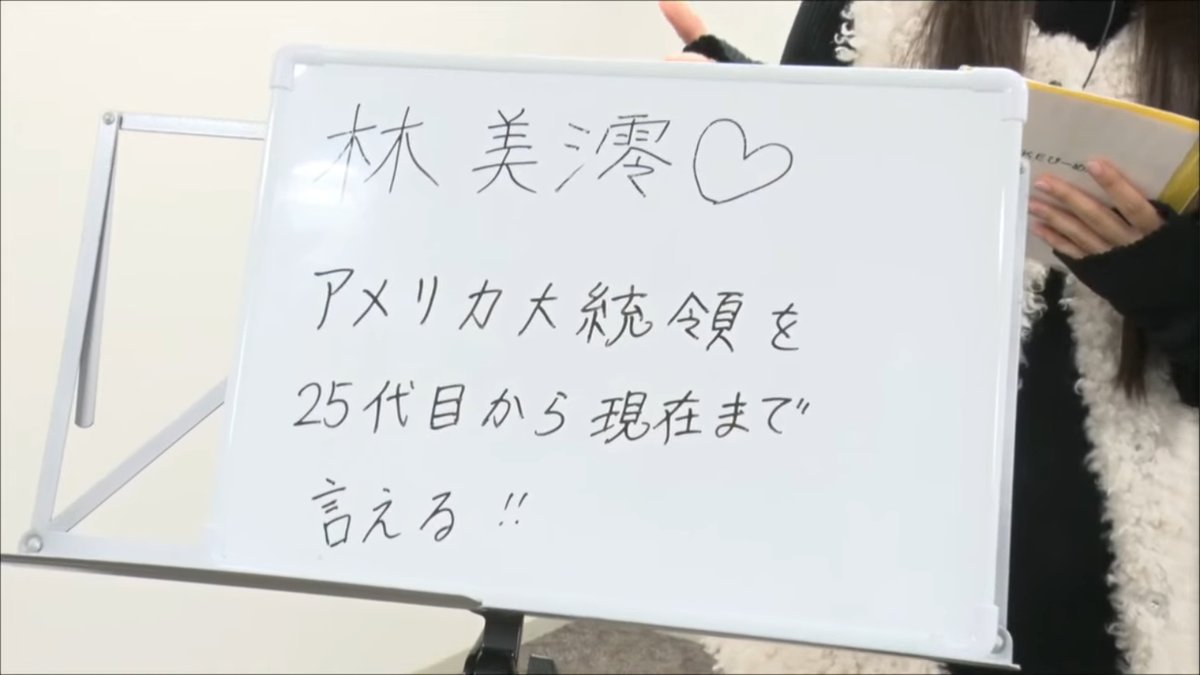 林美澪♡
アメリカ大統領を
25代目から現在まで
言える!!